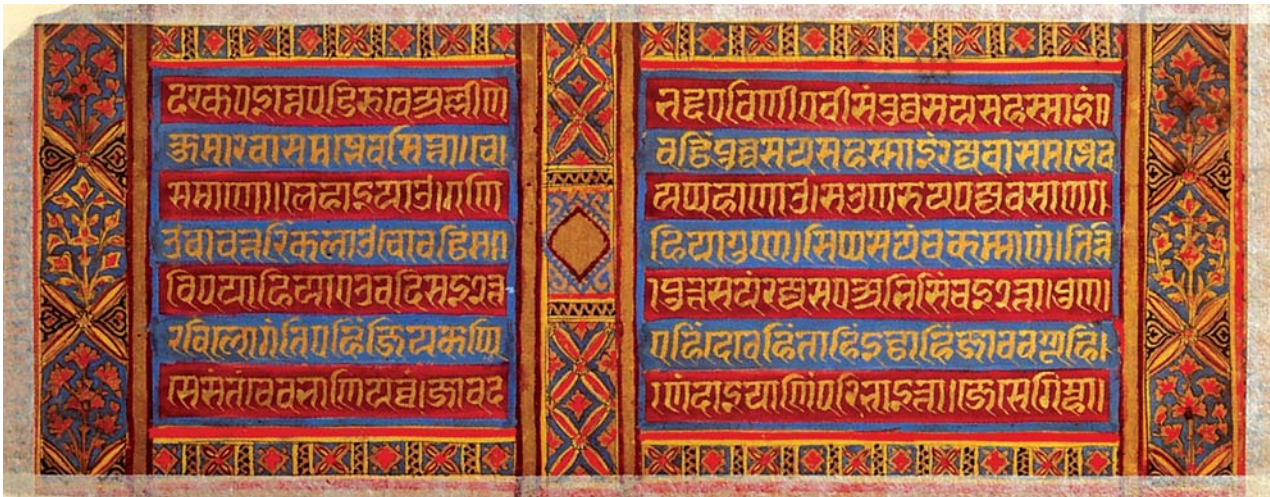 दरकपइन्नेपडिरूवेअल्लीणे भद्दएविणीएवीसंपुव्वसयसहस्साइं
कुमारवासमज्झेवसित्ता॥ते वट्ठिंपुव्वसयसहस्साइंरज्जवासमज्झेव
समाणे॥लेहाइयाउ।गणि यप्पहाणाउसउणरुयपज्जवसाणा
उबावत्तरिंकलाउ हिलागुणे।सिप्पसयंचकम्माणं।तिन्नि
विपयाहियाएउवदिसइ२त्ता पुत्तसयंरज्जसएअभिसिंचइ२त्ता।पुण
रविलोगंतिएहिंजियकप्पि एहिंदेवेहिंताहिंइट्ठाहिंजाववग्गूहिं।
सेसंतंचेवभाणियव्वं।जावदा णंदाइयाणंपरिभाइत्ता॥जेसेगिम्हा